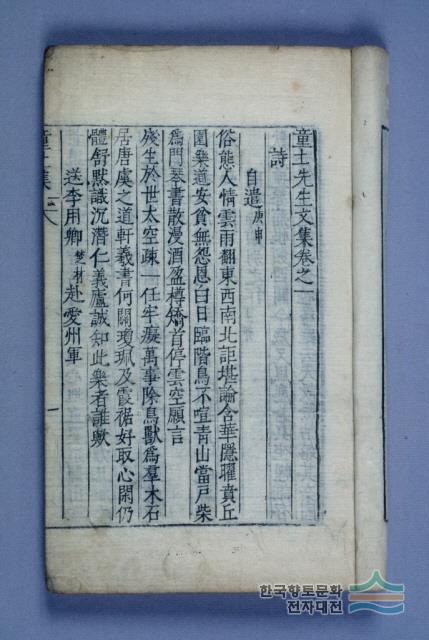 童土先生文集卷之一
詩
自遣 庚申
俗態人情雲雨翻東西南北詎堪論含華隱曜賁丘
園樂道安貧無怨恩白日臨階鳥不喧青山當戶柴
爲門琴書散漫酒盈樽矯首停雲空願言
殘生於世太空疎一任牢癡萬事除鳥獸爲羣木石
居唐虞之道軒羲書何關瓊珮及霞裾好取心閑仍
體舒默識沉潛仁義廬誠知此樂者誰歟
送李用卿 楚材 赴愛州軍
童土集
一
한국향토문화
전자대전